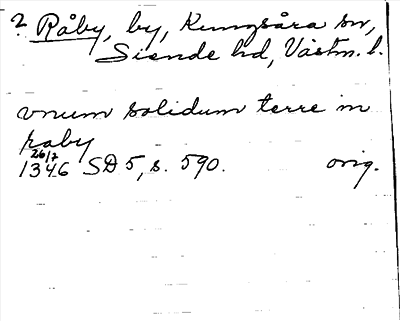 2 Råby, by, Kungsåra sn,
Siende hd, Västm. l.
vnum solidum terre in
raby
26/7
1346 SD 5, s. 590. orig.